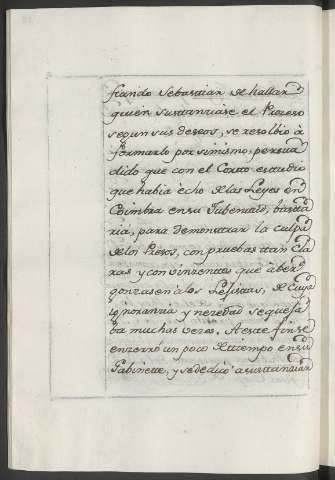 fiando Sebastian de hallar
quien sustanciase el Proceso
segun sus deseos, se resolbio à
formarlo por simismo, persua
dido que con el Corto estudio
que habia echo de las Leyes en
Coimbra en su Jubentud, basta
ria, para demonstrar la culpa
de los Presos, con pruebas tan cla
ras y convinzentes que aber
gonzasen à los Legistas, de cuya
ignoranzia y nezedad se queja
ba muchas vezes. A este fin se
enzerrò un poco de tiempo en su
Gabinette, y se dedicò à sustanziar